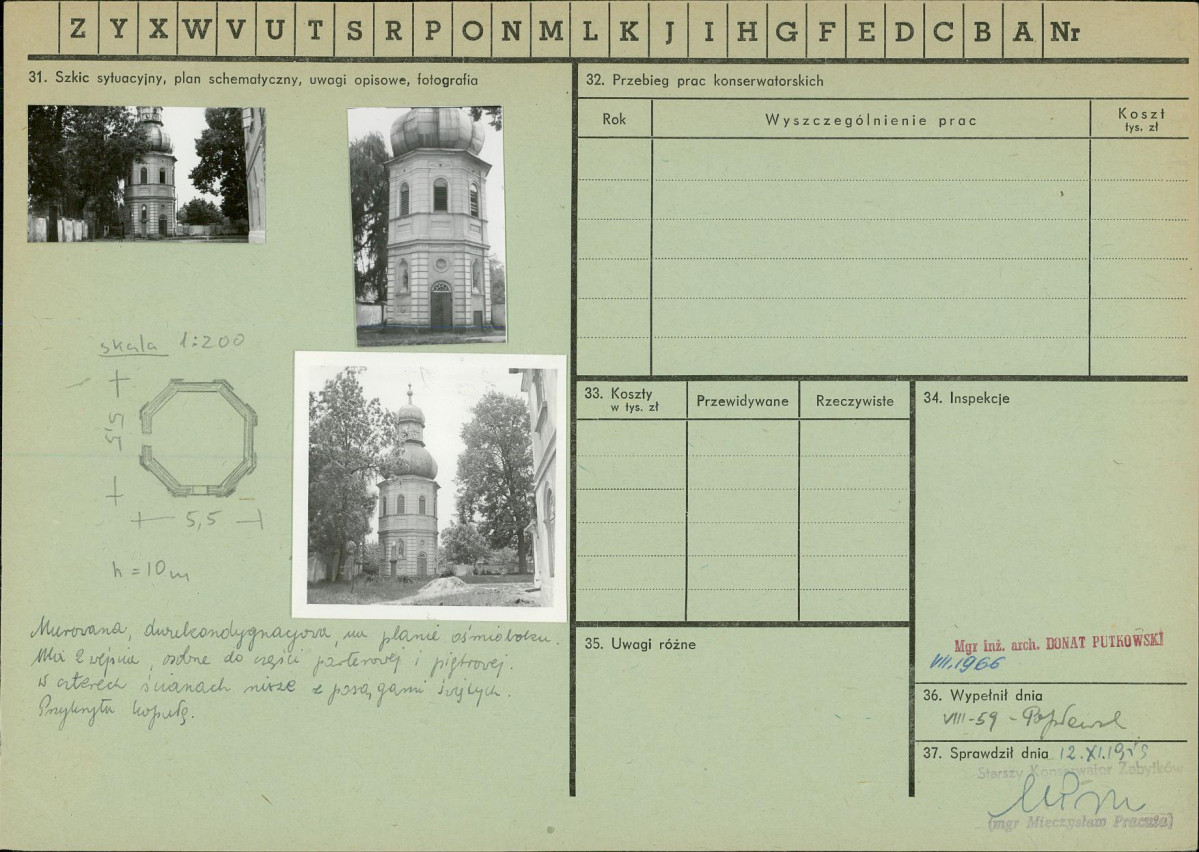 Z Y X W V U T S R P O N M L K J I H G F E D C B A Nr
31. Szkic sytuacyjny, plan schematyczny, uwagi opisowe, fotografia
skala 1:200
5,5
5,5
h = 10 m
Murowana, dwukondygnacyjowa, na planie ośmioboku.
Ma 2 wejścia, osobne do części parterowej i piętrowej.
W czterech ścianach nisze z posągami świętych.
Przykryta kopułą.
32. Przebieg prac konserwatorskich
Rok
Wyszczególnienie prac
Koszt
tys. zł
33. Koszty
w tys. zł
Przewidywane
Rzeczywiste
34. Inspekcje
Mgr inż. arch. DONAT PUTKOWSKI
VII.1966
35. Uwagi różne
36. Wypełnił dnia
VIII-59 -
37. Sprawdził dnia 12.XI.
Starszy Konserwator Zabytków
(mgr Mieczysław Pracuta)